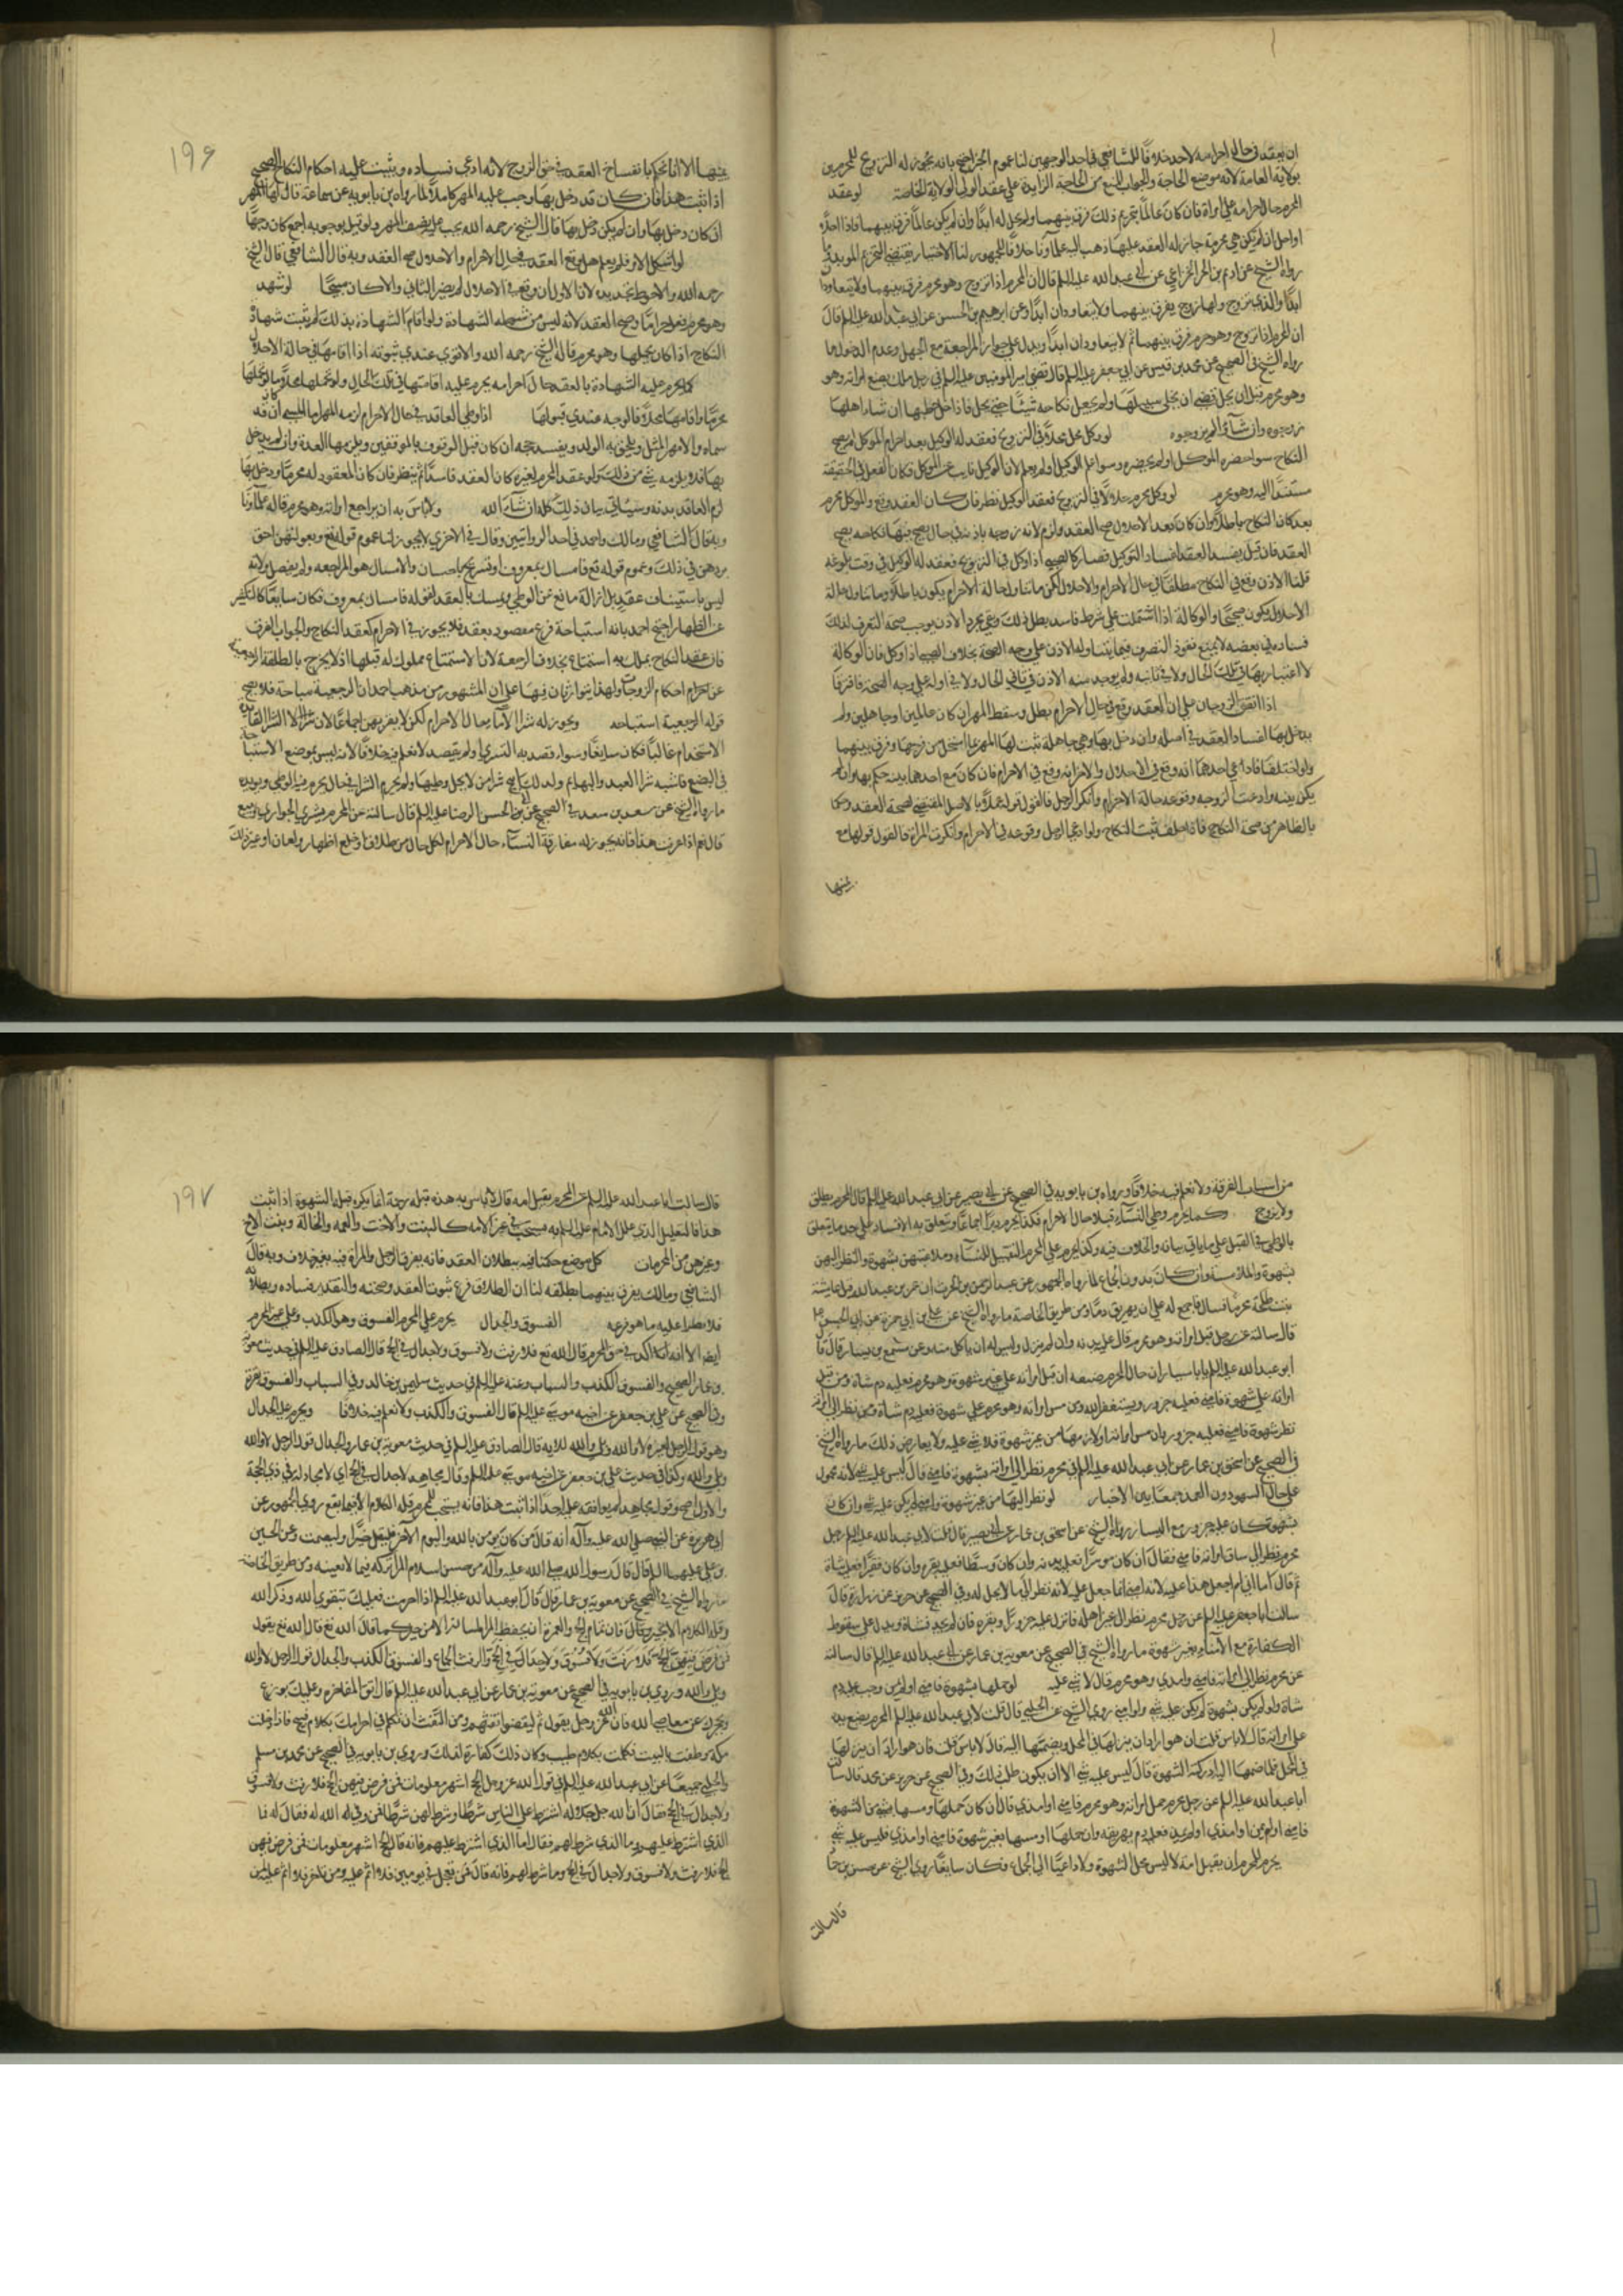 ان يعقد في حال احرامه لاحد خلافًا للشافعي في احد الوجهين لنا عموم الخبر احتج بانه يجوز له التزويج للمحرمين
بولاية العامة لانه موضع الحاجة والجواب المنع من الحاجة الزايدة على عقد الولي الولاية الخاصة لو عقد
المحرم حال احرامه على امراة فان كان عالمًا بتحريم ذلك فرق بينهما ولم تحل له ابدًا وان لم يكن عالمًا فرق بينهما فاذا احلا
او احل ان لم تكن هي محرمة جاز له العقد عليها ذهب اليه علماونا خلافًا للجمهور لنا الاحتياط يقتضي التحريم المؤبد وما
رواه الشيخ عن اديم بن الحر الخزاعي عن ابي عبد الله عليه السلم قال ان المحرم اذا تزوج وهو محرم فرق بينهما ولا يتعاودان
ابدًا والذي يتزوج ولها زوج يفرق بينهما ولا يتعاودان ابدًا وعن ابرهيم بن الحسن عن ابي عبد الله عليه السلم قال
ان المحرم اذا تزوج وهو محرم فرق بينهما ثم لا يتعاودان ابدًا ويدل على جواز المراجعة مع الجهل وعدم الدخول ما
رواه الشيخ في الصحيح عن محمد بن قيس عن ابي جعفر عليه السلم قال قضى امير المومنين عليه السلم في رجل ملك بضع امراة وهو
وهو محرم قبل ان يحل فقضى ان يخلي سبيلها ولم يجعل نكاحه شيئًا حتى يحل فاذا احل خطبها ان شاء اهلها
زوجوه وان شاؤا لم يزوجوه لو وكل محل محلًا في التزويج فعقد له الوكيل بعد احرام الموكل لم يصح
النكاح سواء حضره الموكل او لم يحضره وسواء علم الوكيل او لم يعلم لان الوكيل نايب عن الموكل فكان الفعل في الحقيقة
مستندًا اليه وهو محرم لو وكل محرم حلالًا في التزويج فعقد الوكيل نظر فان كان العقد وقع والموكل محرم
بعد كان النكاح باطلًا وان كان بعد الاحلال صح العقد ولزم لانه زوجه باذنه في حال يصح فيها نكاحه يصح
العقد فان قيل يفسد العقد لفساد التوكيل فصار كالصبي اذا وكل في التزويج فعقد له الوكيل في وقت بلوغه
قلنا الاذن وقع في النكاح مطلقًا في حال الاحرام والاحلال ولكن ما تناول حالة الاحرام يكون باطلًا وما تناول حالة
الاحلال يكون صحيحًا والوكالة اذا اشتملت على شرط فاسد بطل ذلك وبقي مجرد الاذن يوجب صحة التصرف لذلك
فساده في بعضه لا يمنع نفوذ التصرف فيما يتناوله الاذن على وجه الصحة بخلاف الصبي اذا وكل فان الوكالة
لا اعتبار بها في تلك الحال ولا في ثانيه ولم يوجد منه الاذن في ثاني الحال ولا في اوله على وجه الصحة فافترقا
اذا اتفق الزوجان على ان العقد وقع في حال الاحرام بطل وسقط المهر ان كان عالمين او جاهلين ولم
يدخل بها لفساد العقد في اصله وان دخل بها وهي جاهلة ثبت لها المهر بما استحل من فرجها وفرق بينهما
ولو اختلفا فادعى احدهما انه وقع في الاحلال والاخر انه وقع في الاحرام فان كان مع احدهما بينه حكم بها وان لم
يكن بينه وادعت الزوجه وقوعه حالة الاحرام وانكر الرجل فالقول قوله عملًا بالاصل المقتضي لصحة العقد
بالظاهر من صحة النكاح فاذا حلف ثبت النكاح ولو ادعى الرجل وقوعه في الاحرام وانكرت المراة فالقول قولها مع
يمينها
١٩۶
يمينها الا انا نحكم بانفساخ العقد في حق الزوج لانه ادعى فساده ويثبت عليه احكام النكاح الصحيح
اذا ثبت هذا فان كان قد دخل بها وجب عليه المهر كاملًا لما رواه بن بابويه عن سماعة قال لها المهر
ان كان دخل بها وان لم يكن دخل بها قال الشيخ رحمه الله يجب عليه نصف المهر ولو قيل بوجوبه اجمع كان وجهًا
لو اشكل الامر فلم يعلم هل وقع العقد في حال الاحرام والاحلال صح العقد وبه قال الشافعي قال الشيخ
رحمه الله والاحوط تجديده لان الاول ان وقع في الاحلال لم يضر الثاني والا كان مبيحًا لو شهد
وهو محرم فعل حرامًا وصح العقد لانه ليس من شرطه الشهادة ولو اقام الشهادة بذلك لم يثبت شهادة
النكاح اذا كان تحملها وهو محرم قاله الشيخ رحمه الله والاقوى عندي ثبوته اذا اقامها في حالة الاحلال
كما يحرم عليه الشهادة بالعقد حال احرامه يحرم عليه اقامتها في تلك الحال ولو تحملها محلًا
محرمًا واقامها محلًا فالوجه عندي قبولها اذا وطي العاقد في حال الاحرام لزمه المهر اما المسمى ان قد
سماه والا مهر المثل ويلحق به الولد ويفسد حجه ان كان قبل الوقوف بالموقفين ويلزمها العدة وان لم يدخل
بها فلا يلزمه شي من ذلك ولو عقد المحرم لغيره كان العقد فاسدًا ثم ينظر فان كان المعقود له محرمًا ودخل بها
لزم العاقد بدنه وسياتي بيان ذلك كله ان شاء الله ولا باس به ان يراجع امراته وهو محرم قاله علماونا
وبه قال الشافعي ومالك واحمد في احد الروايتين وقال في الاخرى لا يجوز لنا عموم قوله تع وبعولتهن احق
بردهن في ذلك وعموم قوله تع فامساك بمعروف او تسريح باحسان والامساك هو المراجعه ولم يفصل ولانه
ليس باستيناف عقد بل ازالة مانع عن الوطي وتمسك بالعقد لقوله فامساك بمعروف فكان سايغًا كالتكفير
عن الظهار احتج احمد بانه استباحة فرج مقصود بعقد فلا يجوز في الاحرام كعقد النكاح والجواب الفرق
فان عقد النكاح يملك به استمتاع بخلاف الرجعة لان الاستمتاع مملوك له قبلها اذ لا يخرج بالطلقة الرجعية
عن احكام الزوجات ولهذا يتوارثان فيها على ان المشهور من مذهب احمد ان الرجعية مباحة فلا يصح
قوله الرجعية استباحه ويجوز له شرا الاما حال الاحرام لكن لا يقربهن اجماعًا
الاستخدام غالبًا فكان سايغًا وسواء قصد به التسري او لم يقصد لا نعلم فيه خلافًا لانه ليس بموضع الاستباحة
في البضع فاشبه شرا العبيد والبهايم ولذلك ابيح شرا من لا يحل وطيها ولم يحرم الشرا في حال يحرم فيه الوطي ويويده
ما رواه الشيخ عن سعد بن سعد في الصحيح عن ابي الحسن الرضا عليه السلم قال سالته عن المحرم يشتري الجواري ويبيع
قال نعم اذا عرفت هذا فانه يجوز له مفارقة النساء حال الاحرام بكل حال من طلاق او خلع او ظهار او لعان او غير ذلك
من اسباب الفرقة ولا نعلم فيه خلافًا ورواه بن بابويه في الصحيح عن ابي بصير عن ابي عبد الله عليه السلم قال المحرم يطلق
ولا يتزوج وكما يحرم وطي النساء قبلا حال الاحرام فكذا يحرم دبرًا اجماعًا ويتعلق به الافساد على حد ما يتعلق
بالوطي في القبل على ما ياتي بيانه والخلاف فيه وكذا يحرم على المحرم التقبيل للنساء وملاعبتهن بشهوة والنظر اليهن
بشهوة والملامسة وان كان بدون الجماع لما رواه الجمهور عن عبد الرحمن بن الحرث ان عمر بن عبد الله قبل عايشة
بنت طلحة محرمًا فسال فاجمع له على ان يهريق دمًا ومن طريق الخاصة ما رواه الشيخ عن علي بن ابي حمزة عن ابي الحسن عليه
قال سالته عن رجل قبل امراته وهو محرم قال عليه بدنه وان لم ينزل وليس له ان ياكل منه وعن مسمع بن سيار قال قال
ابو عبد الله عليه السلم يا با سيار ان حال المحرم ضيقه ان قبل امراته على غير شهوة وهو محرم فعليه دم شاة ومن قبل
امراته على شهوة فامنى فعليه جزور ويستغفر الله ومن مس امراته وهو محرم على شهوة فعليه دم شاة ومن نظر الى امراته
نظر شهوة فامنى فعليه جزور وان مس امراته او لازمها من غير شهوة فلا شي عليه ولا يعارض ذلك ما رواه الشيخ
في الصحيح عن اسحق بن عمار عن ابي عبد الله عليه السلم في محرم نظر الى امراته بشهوة فامنى قال ليس عليه شي لانه محمول
على حال السهو دون العمد جمعًا بين الاخبار لو نظر اليها من غير شهوة وامنى لم يكن عليه شي وان كان
بشهوة كان عليه جزور مع اليسار رواه الشيخ عن اسحق بن عمار عن ابي بصير قال قلت لابي عبد الله عليه السلم رجل
محرم نظر الى ساق امراته فامنى فقال ان كان موسرًا فعليه بدنه وان كان وسطًا فعليه بقرة وان كان فقيرًا فعليه شاة
ثم قال اما اني لم اجعل هذا عليه لانه امنى انما جعل عليه لانه نظر الى ما لا يحل له وفي الصحيح عن حريز عن زرارة قال
سالت ابا جعفر عليه السلم عن رجل محرم نظر الى غير اهله فانزل عليه جزور او بقره فان لم يجد فشاة ويدل على سقوط
الكفارة مع الامناء بغير شهوة ما رواه الشيخ في الصحيح عن معوية بن عمار عن ابي عبد الله عليه السلم قال سالته
عن محرم نظر الى امراته فامنى وامذى وهو محرم قال لا شي عليه لو حملها بشهوة فامنى او لم يمن وجب عليه دم
شاة ولو لم يكن بشهوة لم يكن عليه شي ولو امنى روى الشيخ عن الحلبي قال قلت لابي عبد الله عليه السلم المحرم يضع يده
على امراته قال لا باس قلت فان هو اراد ان ينزلها في المحمل ويضمها اليه قال لا باس قلت فان هو اراد ان ينزلها
في المحمل فلما ضمها اليه ادركته الشهوة قال ليس عليه شي الا ان يكون طلب ذلك وفي الصحيح عن حريز عن محمد قال سالت
ابا عبد الله عليه السلم عن رجل محرم حمل امراته وهو محرم فامنى او امذى قال ان كان حملها ومسها بشي من الشهوة
فامنى او لم يمن او امذى او لم يمذ فعليه دم يهريقه وان حملها او مسها بغير شهوة فامنى او امذى فليس عليه شي
يحرم للمحرم ان يقبل امه لا ليس محل الشهوة ولا داعيًا الى الجماع فكان سايغًا روى الشيخ عن حسين بن حماد
قال سالت
١٩٧
قال سالت ابا عبد الله عليه السلم عن المحرم يقبل امه قال لا باس به هذه قبلة رحمة انما يكره قبلة الشهوة اذا ثبت
هذا فالتعليل الذي علل الامام عليه السلم به منسحب في غير الام كالبنت والاخت والعمه والخالة وبنت الاخ
وغيرهن من المحرمات كل موضع حكمنا فيه ببطلان العقد فانه يفرق الرجل والمراة فيه بغير خلاف وبه قال
الشافعي ومالك يفرق بينهما بطلقه لنا ان الطلاق فرع ثبوت العقد وصحته والتقدير فساده وبطلانه
فلا يطرا عليه ما هو فرعه الفسوق والجدال يحرم على المحرم الفسوق وهو الكذب وعلى غير المحرم
ايضًا الا انه اكد في حق المحرم قال الله تع فلا رفث ولا فسوق ولا جدال في الحج قال الصادق عليه السلم في حديث معوية
بن عمار الصحيح والفسوق الكذب والسباب وعنه عليه السلم في حديث سليمن بن خالد وفي السباب والفسوق بقرة
وفي الصحيح عن علي بن جعفر عن اخيه موسى عليه السلم قال الفسوق والكذب ولا نعلم فيه خلافًا ويحرم عليه الجدال
وهو قول الرجل لغيره لا والله وبلى والله للاية قال الصادق عليه السلم في حديث معوية بن عمار والجدال قول الرجل لا والله
وبلى والله وكذا في حديث علي بن جعفر عن اخيه موسى عليه السلم وقال مجاهد لا جدال في الحج اي لا مجادلة في ذي الحجة
والاول اصح وقول مجاهد لم يوافقه عليه احد اذا ثبت هذا فانه يستحب للمحرم قلة الكلام الا فيما ينفع روى الجمهور عن
ابي هريرة عن النبي صلى الله عليه وآله انه قال من كان يومن بالله واليوم الآخر فليقل خيرًا او ليصمت وعن الحسين
بن علي عليهما السلم قال قال رسول الله صلى الله عليه وآله من حسن اسلام المرا تركه فيما لا يعنيه ومن طريق الخاصة
ما رواه الشيخ في الصحيح عن معوية بن عمار قال قال ابو عبد الله عليه السلم اذا احرمت فعليك بتقوى الله وذكر الله
وقلة الكلام الا بخير وقال فان تمام الحج والعمرة ان يحفظ المرا لسانه الا من خير كما قال الله تع قال الله تع يقول
فمن فرض فيهن الحج فلا رفث ولا فسوق ولا جدال في الحج والرفث الجماع والفسوق الكذب والجدال قول الرجل لا والله
وبلى والله وروى بن بابويه في الصحيح عن معوية بن عمار عن ابي عبد الله عليه السلم قال اتق المفاخرة وعليك بورع
يحجزك عن معاصي الله فان الله عز وجل يقول ثم ليقضوا تفثهم ومن التفث ان تتكلم في احرامك بكلام قبيح فاذا دخلت
مكة وطفت بالبيت فتكلمت بكلام طيب وكان ذلك كفارة لذلك وروى بن بابويه في الصحيح عن محمد بن مسلم
والحلبي جميعًا عن ابي عبد الله عليه السلم في قول الله عز وجل الحج اشهر معلومات فمن فرض فيهن الحج فلا رفث ولا فسوق
ولا جدال في الحج فقال ان الله جل جلاله اشترط على الناس شرطًا وشرط لهم شرطًا فمن وفى له الله له فقال له فما
الذي اشترط عليهم وما الذي شرط لهم فقال اما الذي اشترط عليهم فانه قال الحج اشهر معلومات فمن فرض فيهن
الحج فلا رفث ولا فسوق ولا جدال في الحج وما شرط لهم فانه قال فمن تعجل في يومين فلا اثم عليه ومن تاخر فلا اثم عليه لمن